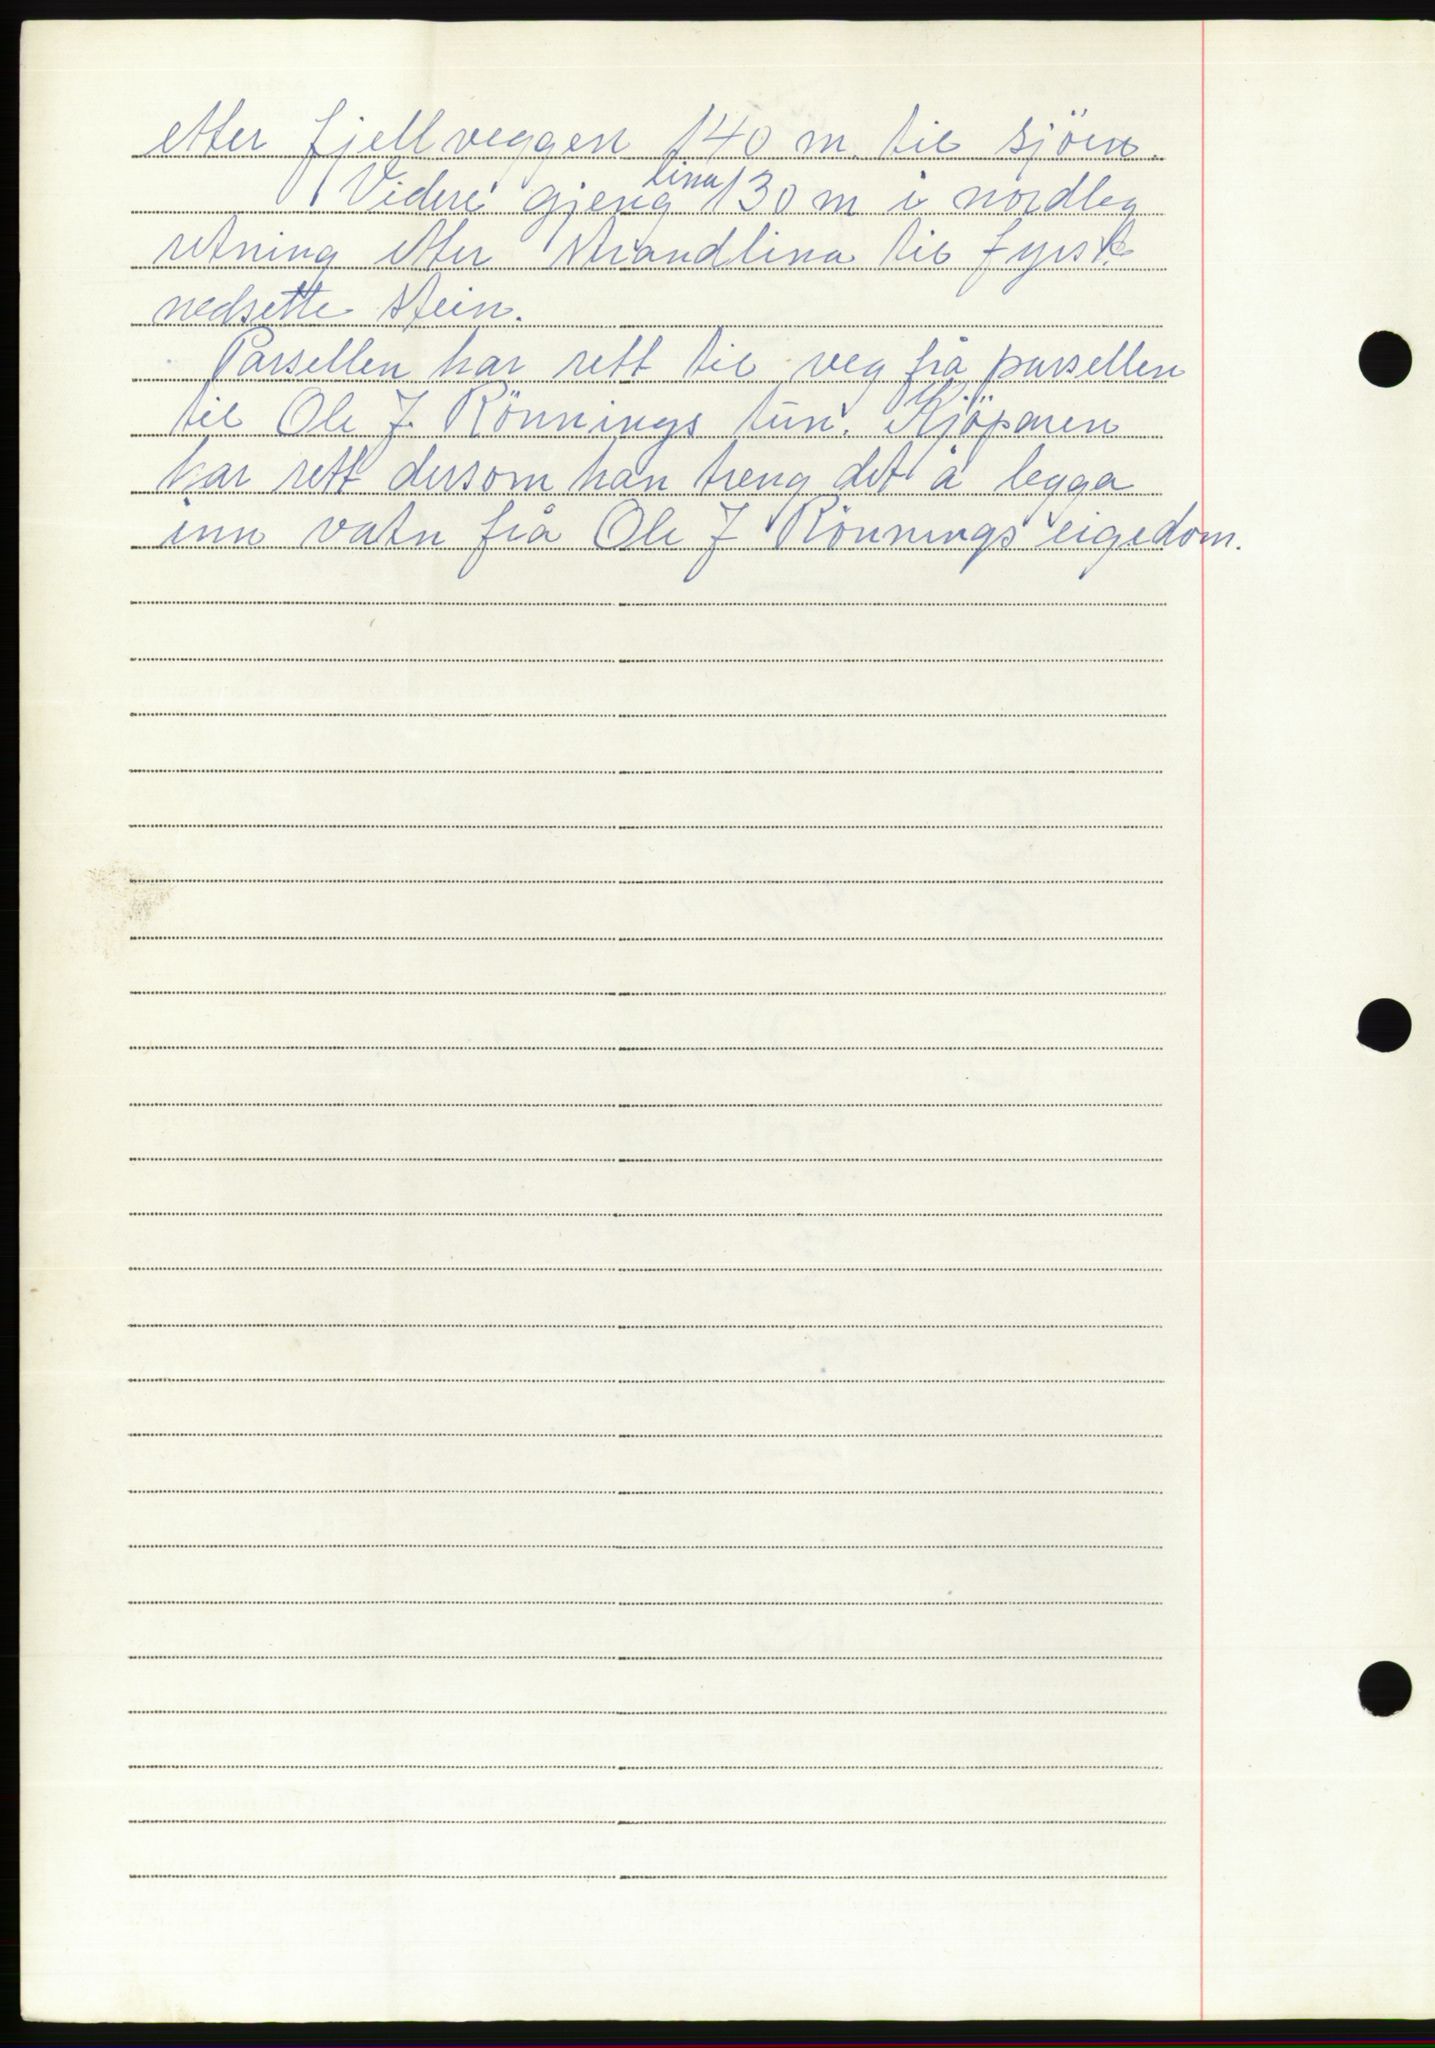 etter fjellveggen 140 m. til sjöen.
Vidare gjeng lina 130 m i nordleg
retning etter strandlina til fyrst
nedsette stein.
Parsellen har rett til veg frå parsellen
til Ole J. Rönnings tun. Kjöparen
har rett dersom han treng det å legga
inn vatn frå Ole J Rönnings eigedom.